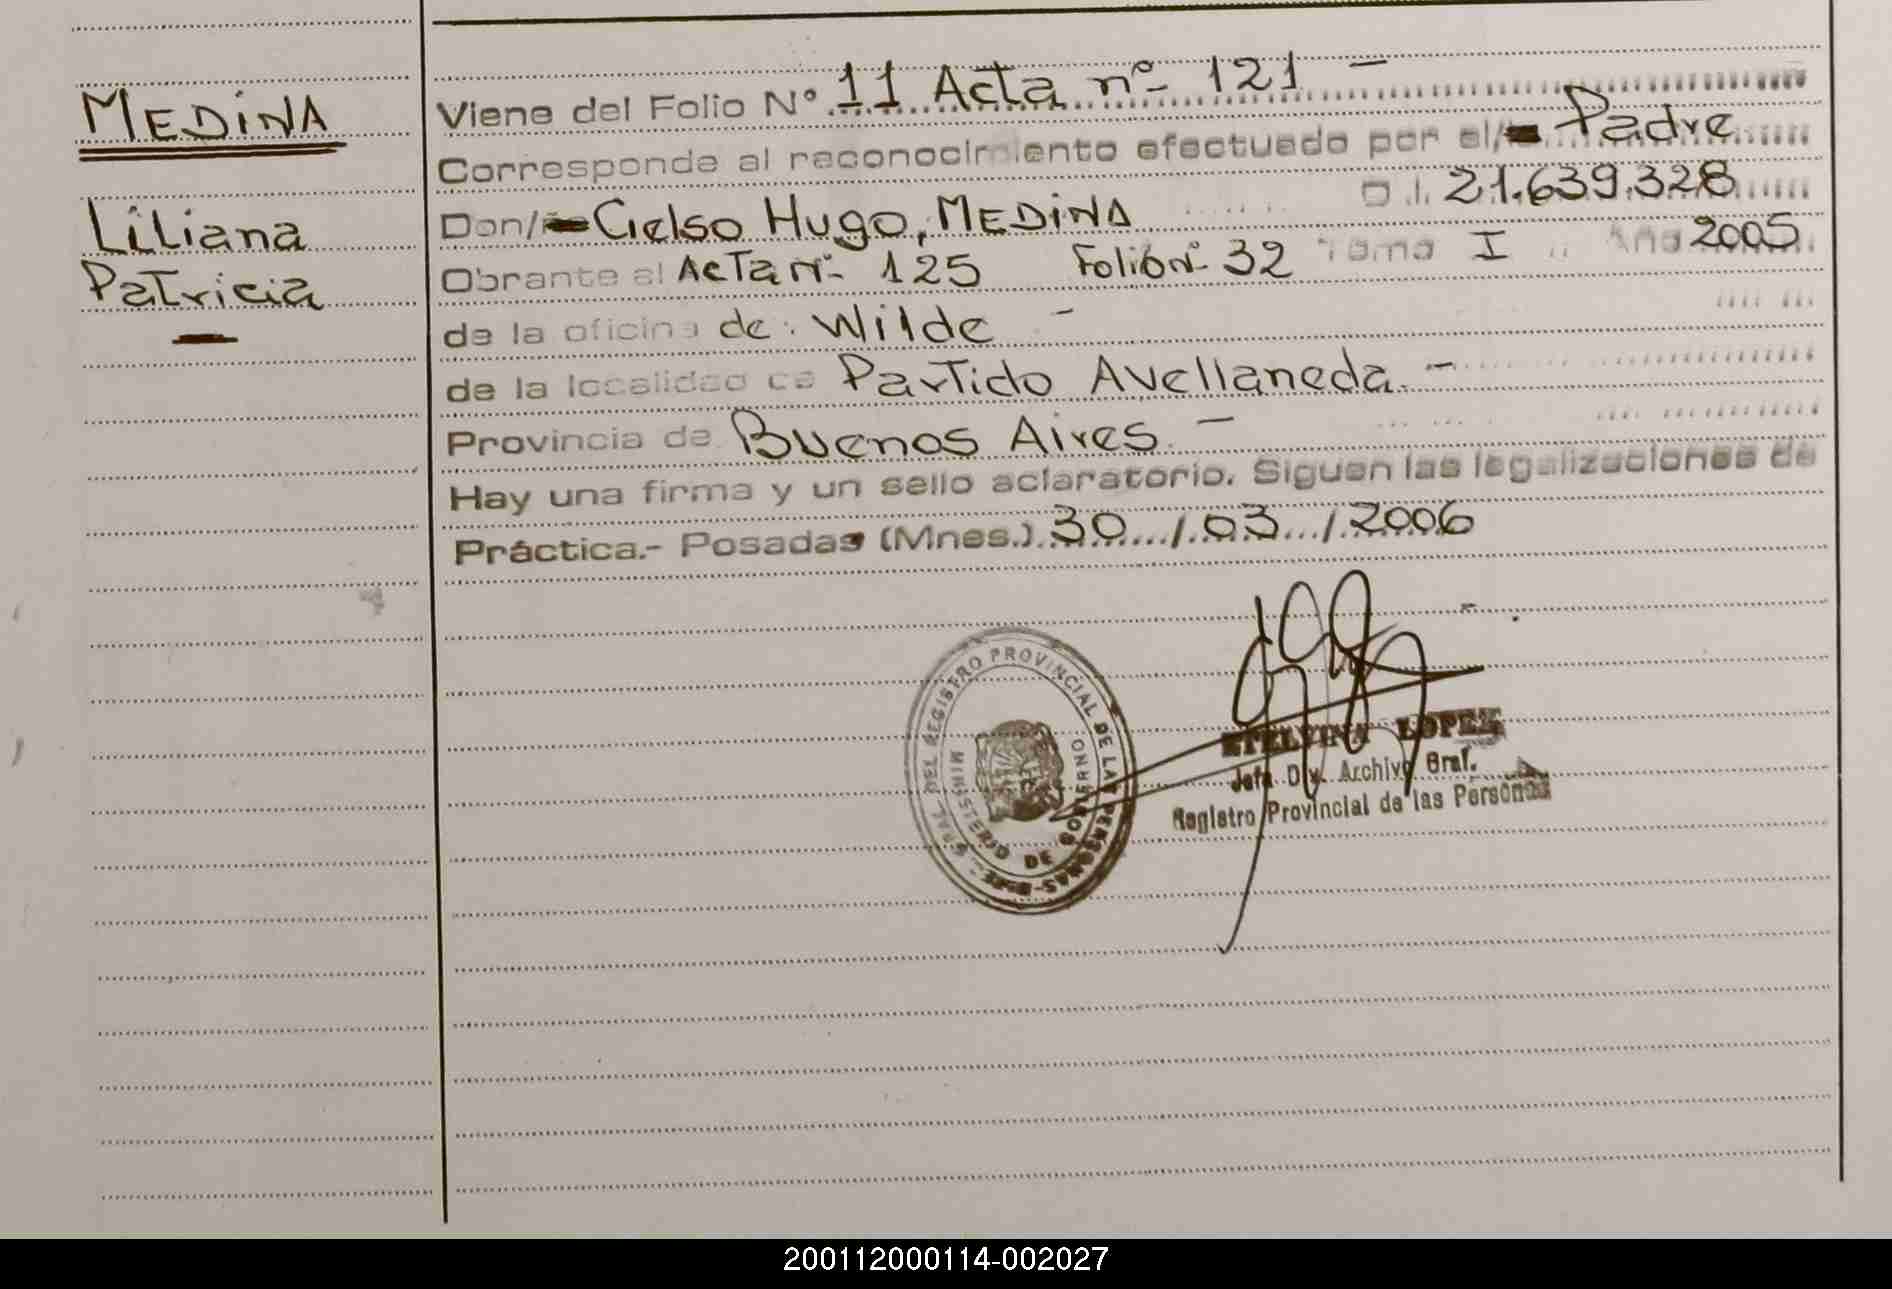 MEDINA
Liliana
Patricia
Viene del Folio N° 11 Acta nº 121 -
Corresponde al reconocimiento efectuado por el/ Padre
Don/ Cielso Hugo, MEDINA D.I. 21.639.328
Obrante al Acta Nº 125 Folio Nº 32 Tomo I Año 2005
de la oficina de: Wilde -
de la localidad de Partido Avellaneda. -
Provincia de Buenos Aires. -
Hay una firma y un sello aclaratorio. Siguen las legalizaciones de
Práctica.- Posadas (Mnes.) 30 / 03 / 2006
GRAL. DEL REGISTRO PROVINCIAL DE LAS PERSONAS
MINISTERIO DE GOBIERNO
ETELVINA LOPEZ
Jefa Div. Archivo Gral.
Registro Provincial de las Personas
200112000114-002027